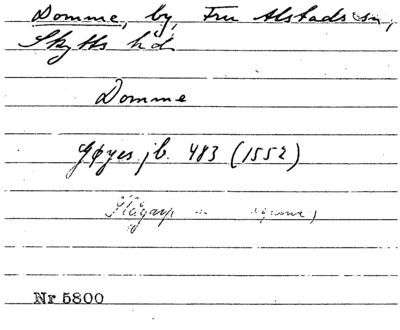 Domme, by, Fru Alstads sn,
Skytts hd
Domme
Gøyes jb. 483 (1552)
Nr 5800